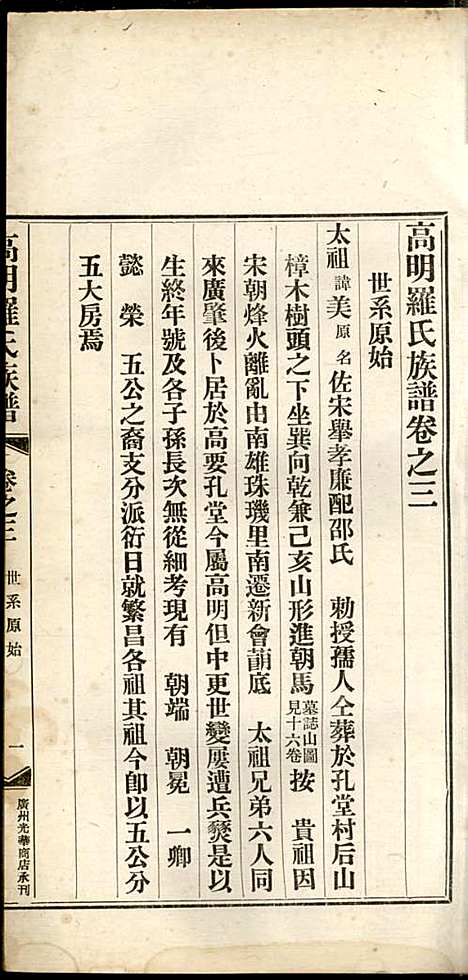 高明羅氏族譜卷之三
世系原始
太祖諱美原名佐宋舉孝廉配邵氏 勅授孺人仝葬於孔堂村后山
樟木樹頭之下坐巽向乾兼己亥山形進朝馬墓誌山圖見十六卷按 貴祖因
宋朝烽火離亂由南雄珠璣里南遷新會蓢底 太祖兄弟六人同
來廣肇後卜居於高要孔堂今屬高明但中更世變屢遭兵燹是以
生終年號及各子孫長次無從細考現有 朝端 朝冕 一卿
懿 榮 五公之裔支分派衍日就繁昌各祖其祖今卽以五公分
五大房焉
高明羅氏族譜 卷之三 世系原始 一 廣州光華商店承刊